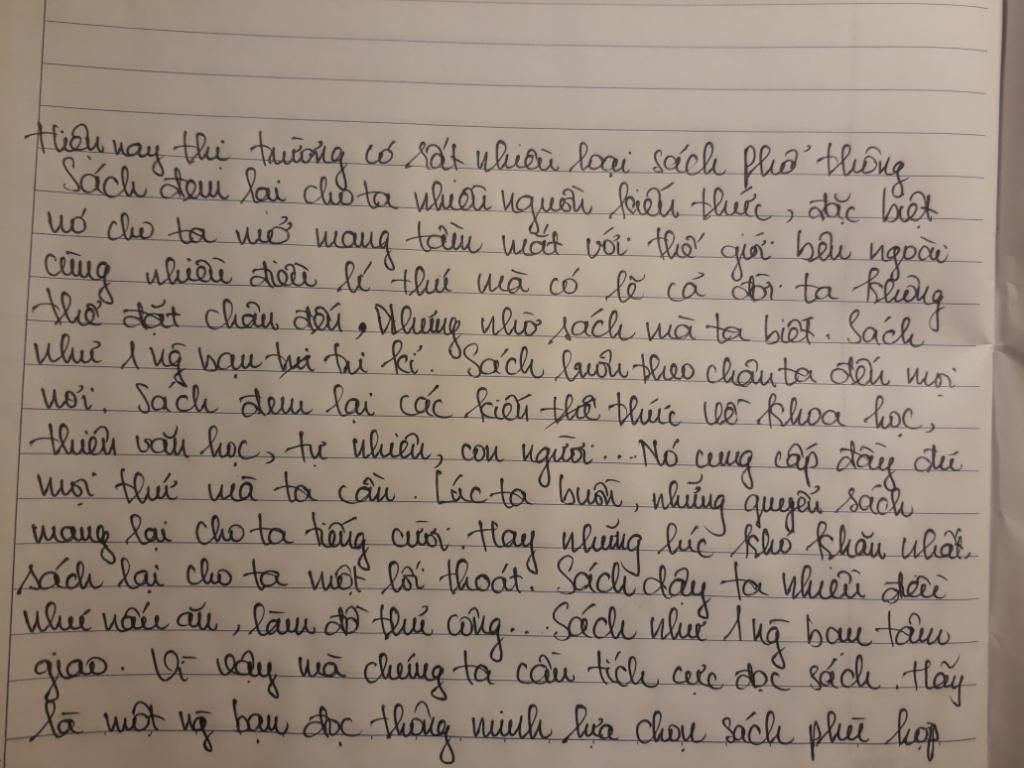 Hiện nay thi trường có rất nhiều loại sách phổ thông
Sách đem lại cho ta nhiều nguồn kiến thức, đặc biệt
nó cho ta mở mang tầm mắt với thế giới bên ngoài
cùng nhiều điều lí thú mà có lẽ cả đời ta không
thể đặt chân đến, Nhưng nhờ sách mà ta biết. Sách
như 1 ng bạn tri kỉ. Sách luôn theo chân ta đến mọi
nơi. Sách đem lại các kiến thức về khoa học,
thiên văn học, tự nhiên, con người... Nó cung cấp đầy đủ
mọi thứ mà ta cần. Lúc ta buồn, những quyển sách
mang lại cho ta tiếng cười. Hay những lúc khó khăn nhất.
sách lại cho ta một lối thoát. Sách dậy ta nhiều điều
như nấu ăn, làm đồ thủ công... Sách như 1 ng bạn tâm
giao. Vì vậy mà chúng ta cần tích cực đọc sách. Hãy
là một ng bạn đọc thông minh lựa chọn sách phù hợp